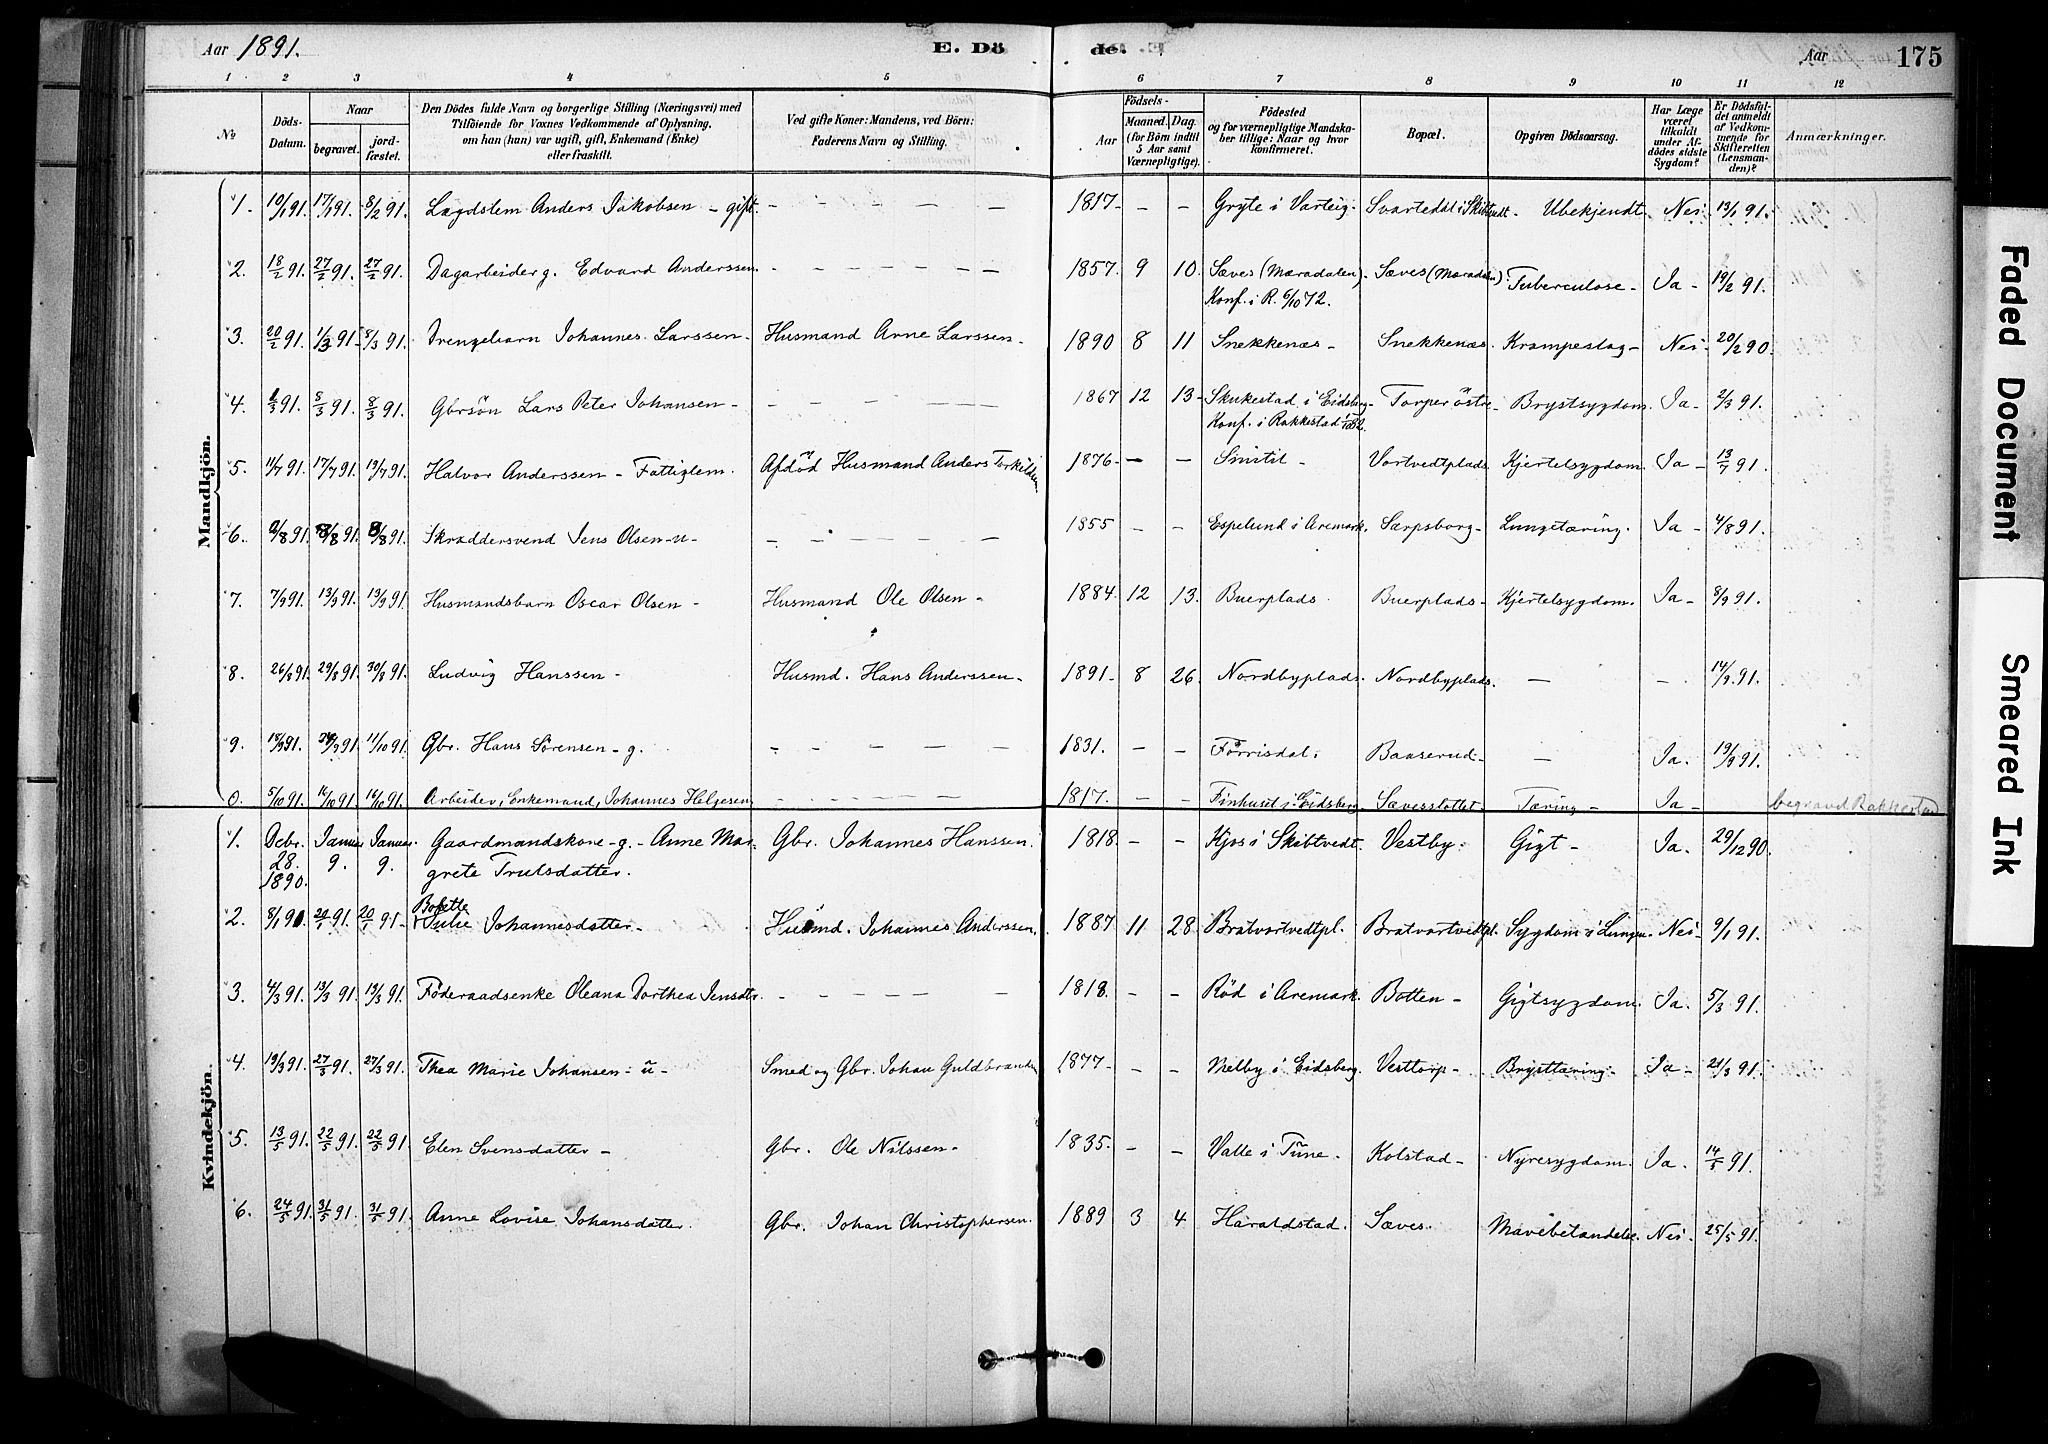 Aar 1891. E. Dö de. Aar 175
1 2 3 4 5 6 7 8 9 10 11 12
No Döds-Datum. Naar begravet. jord-fæstet. Den Dödes fulde Navn og borgerlige Stilling (Næringsvei) med Tilföiende for Voxnes Vedkommende af Oplysning, om han (hun) var ugift, gift, Enkemand (Enke) eller fraskilt. Ved gifte Koner: Mandens, ved Börn: Faderens Navn og Stilling. Aar Födsels- Maaned. Dag. (for Börn indtil 5 Aar samt Værnepligtige). Födested og for værnepligtige Mandskaber tillige: Naar og hvor konfirmeret. Bopæl. Opgiven Dödsaarsag. Har Læge været tilkaldt under Afdödes sidste Sygdom? Er Dödsfaldet anmeldt af Vedkommende for Skifteretten (Lensmanden)? Anmærkninger.
Mandkjön.
1. 10/1 91. 17/1 91. 8/2 91. Lægdslem Anders Jakobsen - gift. - - - - 1817 - - - Gryte i Varteig. Svarteddal i Skibtvedt - Ubekjendt - Nei - 13/1 91.
2. 18/2 91. 27/2 91. 27/2 91. Dagarbeider g. Edvard Anderssen - - - - - 1857. 9 10. Sæves (Maradalen). Sæves (Maradalen). Tuberculose - Ja - 19/2 91.
Konf. i R. 6/10 72.
3. 20/2 91. 1/3 91. 8/3 91. Drengebarn Johannes Larssen - Husmand Arne Larssen - 1890 8 11 Snekkenæs - Snekkenæs. Krampeslag - Nei - 20/2 90.
4. 1/3 91. 8/3 91. 8/3 91. Gbrsön Lars Peter Johansen - - - - - - 1867 12 13 - Skukestad i Eidsberg - Torper östre - Brystsygdom. Ja - 2/3 91.
Konf. i Rakkestad
5. 11/7 91. 17/7 91. 19/7 91. Halvor Anderssen - Fattiglem. Afdöd Husmand Anders Torkildsen 1876 - - - Smitil - Vortvedtplads. Kjertelsygdom. Ja - 13/7 91.
6. 2/8 91. 8/8 91. 8/8 91. Skræddersvend Jens Olsen - u - - - - - - 1855 - - Espelund i Aremark. Sarpsborg - Lungetæring. Ja - 4/8 91.
7. 7/9 91. 13/9 91. 13/9 91. Husmandsbarn Oscar Olsen - Husmand Ole Olsen - 1884. 12 13. Buerplads. Buerplads - Kjertelsygdom. Ja - 8/9 91.
8. 26/8 91. 29/8 91. 30/8 91. Ludvig Hanssen - Husmd. Hans Anderssen - 1891 - 8 26. Nordbyplads. Nordbyplads. - - . 14/9 91.
9. 18/9 91. 9 91. 11/10 91. Gbr. Hans Sörensen - g. - - - - - 1831. - - Förrisdal. Baaserud - - Ja. 19/9 91.
0. 5/10 91. 16/10 91. 16/10 91. Arbeider, Enkemand, Johannes Helgesen - - - - - 1817. - - Finhuset i Eidsberg. Sævesslottet. Tæring - Ja - begravd Rakkestad
Kvindekjön.
1. Decbr. 28. 1890. Januar 9. Januar 9. Gaardmandskone - g. - Anne Margrete Trulsdatter. Gbr. Johannes Hanssen. 1818 - - - Kjos i Skibtvedt. Vestby. Gigt - Ja. 29/12 90.
2. 8/1 91. 20/1 91. 20/1 91 - Bolette Julie Johannesdatter - Husmd. Johannes Anderssen. 1887 11 28. Bratvortvedtpl. Bratvortvedtpl. Sygdom i Lungen - Nei - 9/1 91.
3. 4/3 91. 13/3 91. 13/3 91. Föderaadsenke Oleana Dorthea Jensdtr. - - - - - 1818. - - Röd i Aremark. Botten - Gigtsygdom. Ja. 5/3 91.
4. 19/3 91. 27/3 91. 27/3 91. Thea Marie Johansen - u - Smed og Gbr. Johan Guldbrandsen 1877 - - - Melby i Eidsberg. Vesttorp - Brysttæring - Ja - 21/3 91.
5. 13/5 91. 22/5 91. 22/5 91. Elen Svensdatter - Gbr. Ole Nilssen - 1835. - - Valle i Tune. Kolstad - Nyresygdom. Ja. 14/5 91.
6. 24/5 91. 31/5 91. 31/5 91. Anne Lovise Johansdatter. Gbr. Johan Christophersen. 1889 3 4 Haraldstad. Sæves. Mavebetændelse. Nei. 25/5 91.
Faded Document
Smeared Ink